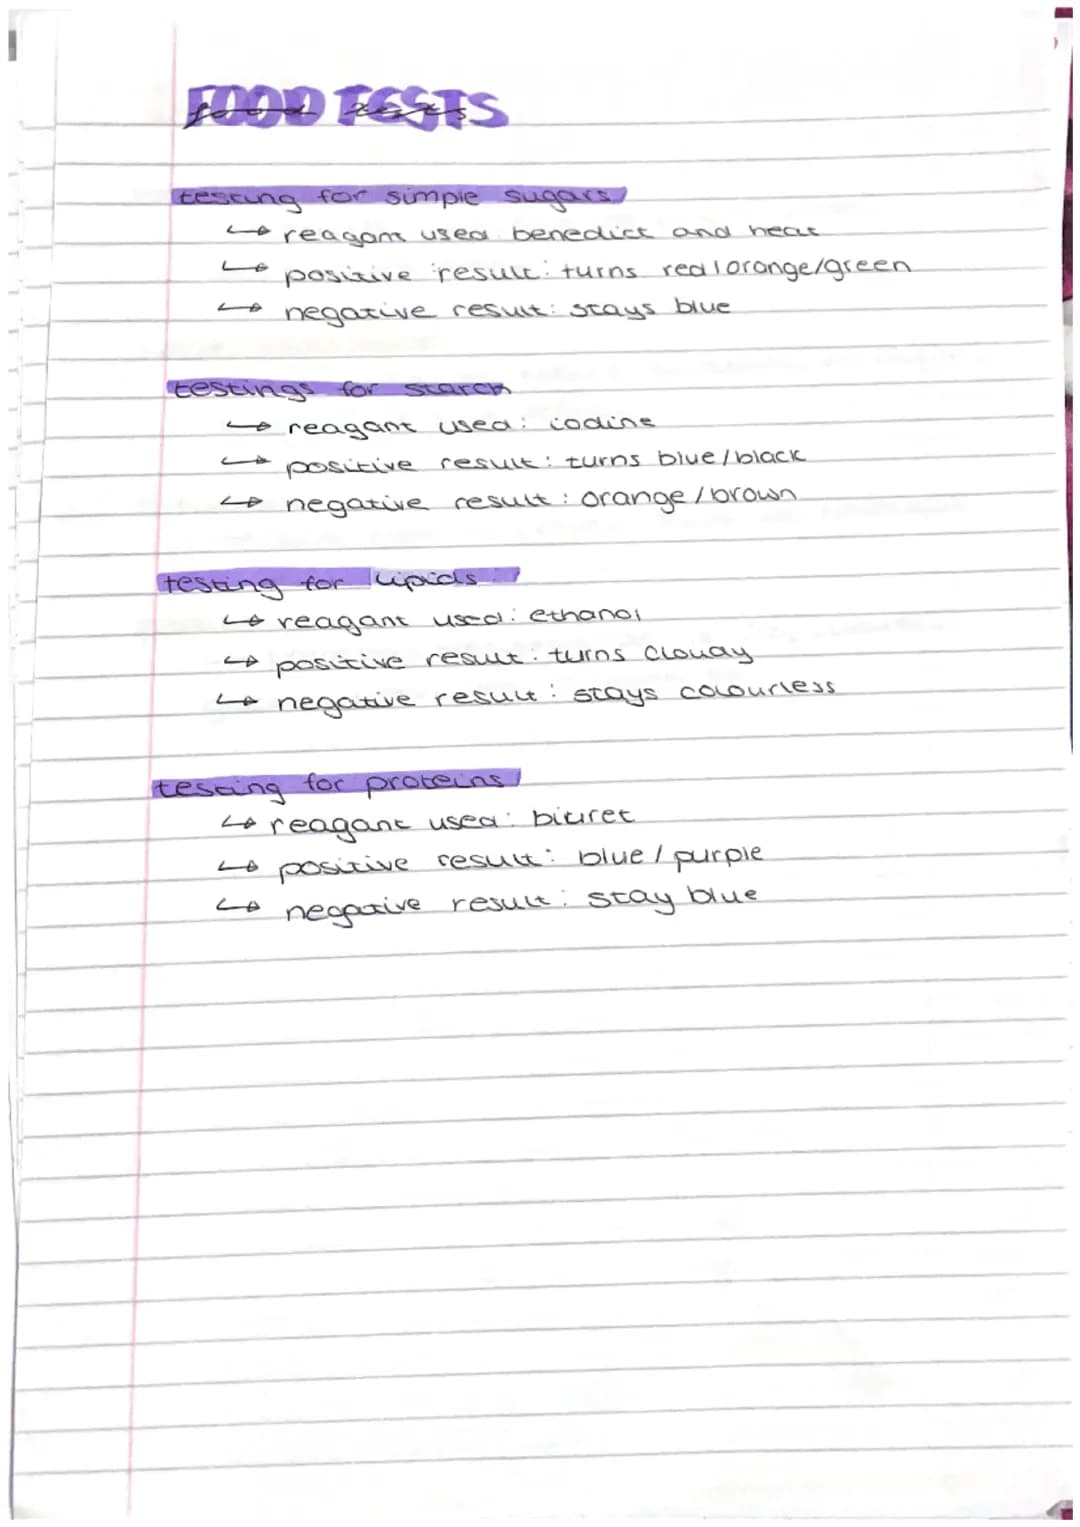 FOOD TESTS
food tests
testing for simple sugars
↳ reagant used: benedict and heat
↳ positive result: turns red/orange/green
↳ negative result: stays blue
testings for starch
↳ reagant used: iodine
↳ positive result: turns blue/black
↳ negative result: orange/brown
testing for lipids
↳ reagant used: ethanol
↳ positive result: turns cloudy
↳ negative result: stays colourless
testing for proteins
↳ reagant used: biuret
↳ positive result: blue/purple
↳ negative result: stay blue